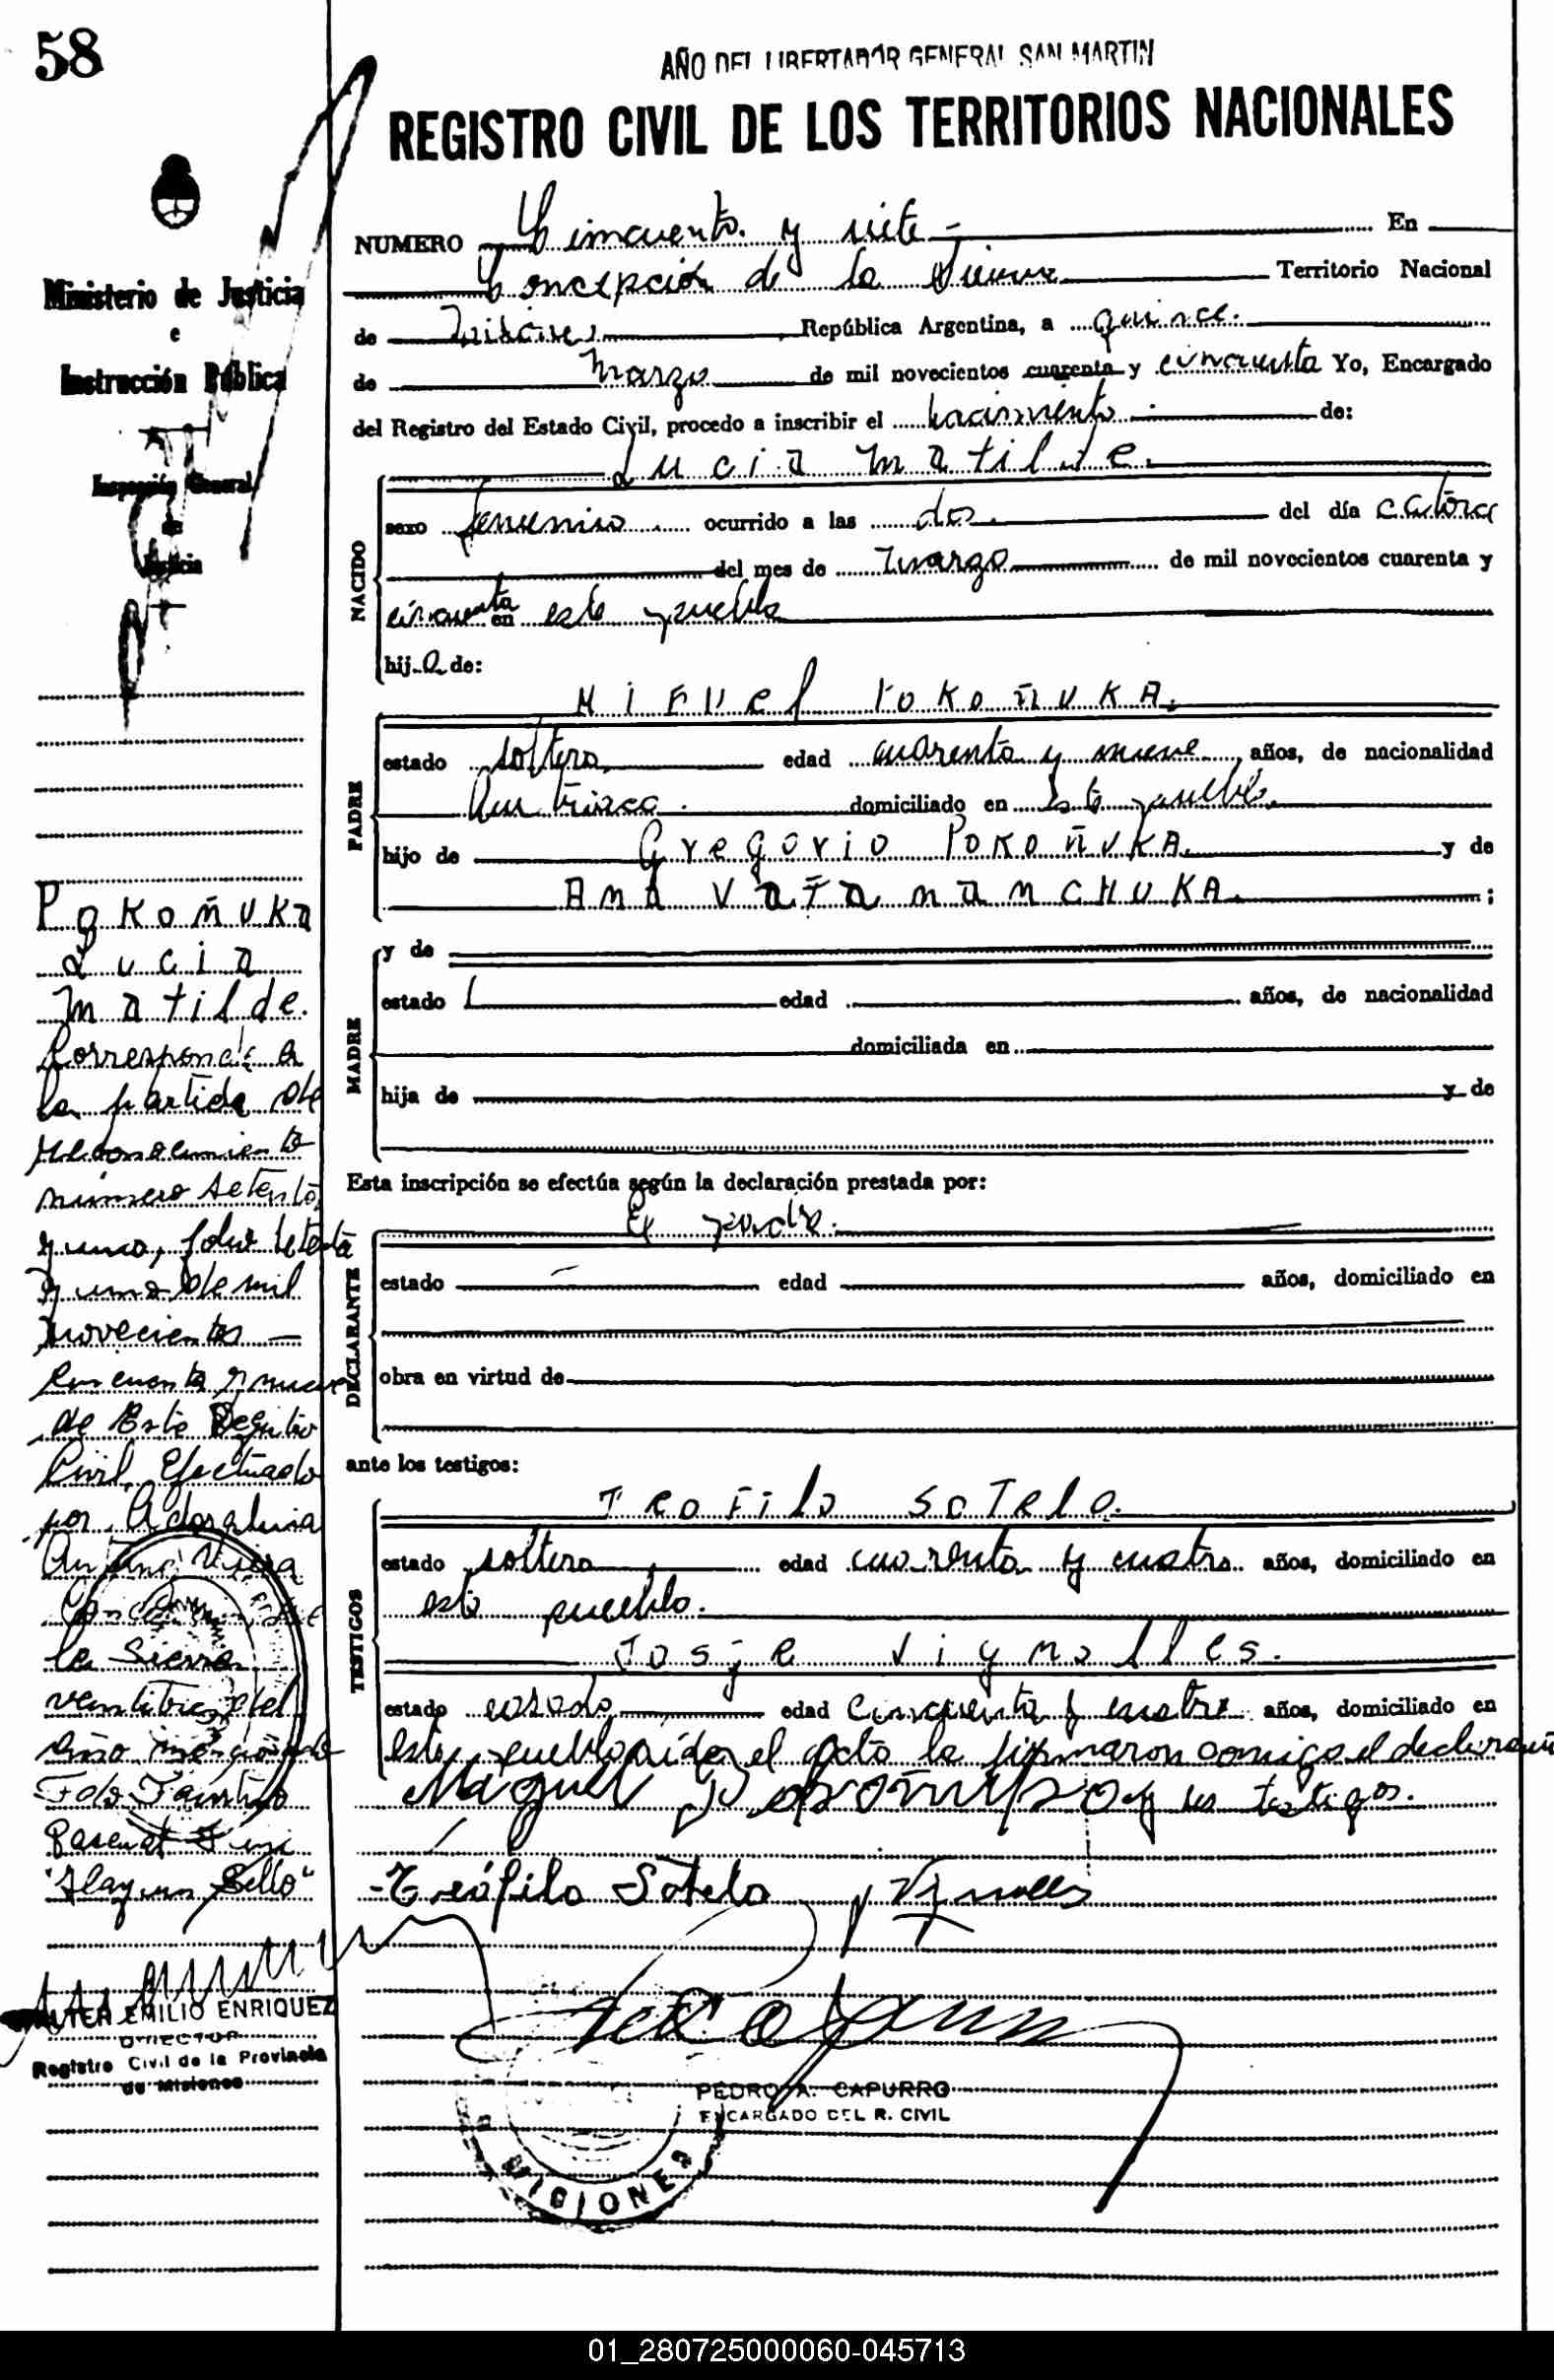 58
AÑO DEL LIBERTADOR GENERAL SAN MARTIN
REGISTRO CIVIL DE LOS TERRITORIOS NACIONALES
Ministerio de Justicia
e
Instrucción Pública
Inspección General
de
Justicia
NUMERO Cincuenta y siete - En
Concepción de la Sierra Territorio Nacional
de Misiones República Argentina, a quince.
de Marzo de mil novecientos cuarenta y cincuenta Yo, Encargado
del Registro del Estado Civil, procedo a inscribir el nacimiento de:
Lucia Matilde.
NACIDO
sexo femenino ocurrido a las dos del día catorce
del mes de marzo de mil novecientos cuarenta y
cincuenta en este pueblo
hija de:
Miguel POKOÑUKA.
PADRE
estado soltero edad cuarenta y nueve años, de nacionalidad
Austriaca. domiciliado en Este pueblo.
hijo de Gregorio POKOÑUKA. y de
Ana VATAMANCHUKA. ;
MADRE
y de
estado edad años, de nacionalidad
domiciliada en
hija de y de
Esta inscripción se efectúa según la declaración prestada por:
El padre.
DECLARANTE
estado edad años, domiciliado en
obra en virtud de
ante los testigos:
TESTIGOS
Teofilo Sotelo.
estado soltero edad cuarenta y cuatro años, domiciliado en
este pueblo.
Jose Vignolles.
estado casado edad cincuenta y cuatro años, domiciliado en
este pueblo leida el acta la firmaron conmigo el declarante
y los testigos.
Teófilo Sotelo Vignolles
PEDRO A. CAPURRO
ENCARGADO DEL R. CIVIL
MISIONES
Pokoñuka
Lucia
Matilde.
Corresponde a
la partida de
reconocimiento
número setenta
y uno, folio setenta
y uno de mil
novecientos —
cincuenta y nueve
de Este Registro
Civil, Efectuado
por Adoralina
Antuna Viera
Concepción de
la Sierra
del
año mencionado
Fdo
"Hay un Sello"
WALTER EMILIO ENRIQUEZ
DIRECTOR
Registro Civil de la Provincia
de Misiones
01_280725000060-045713